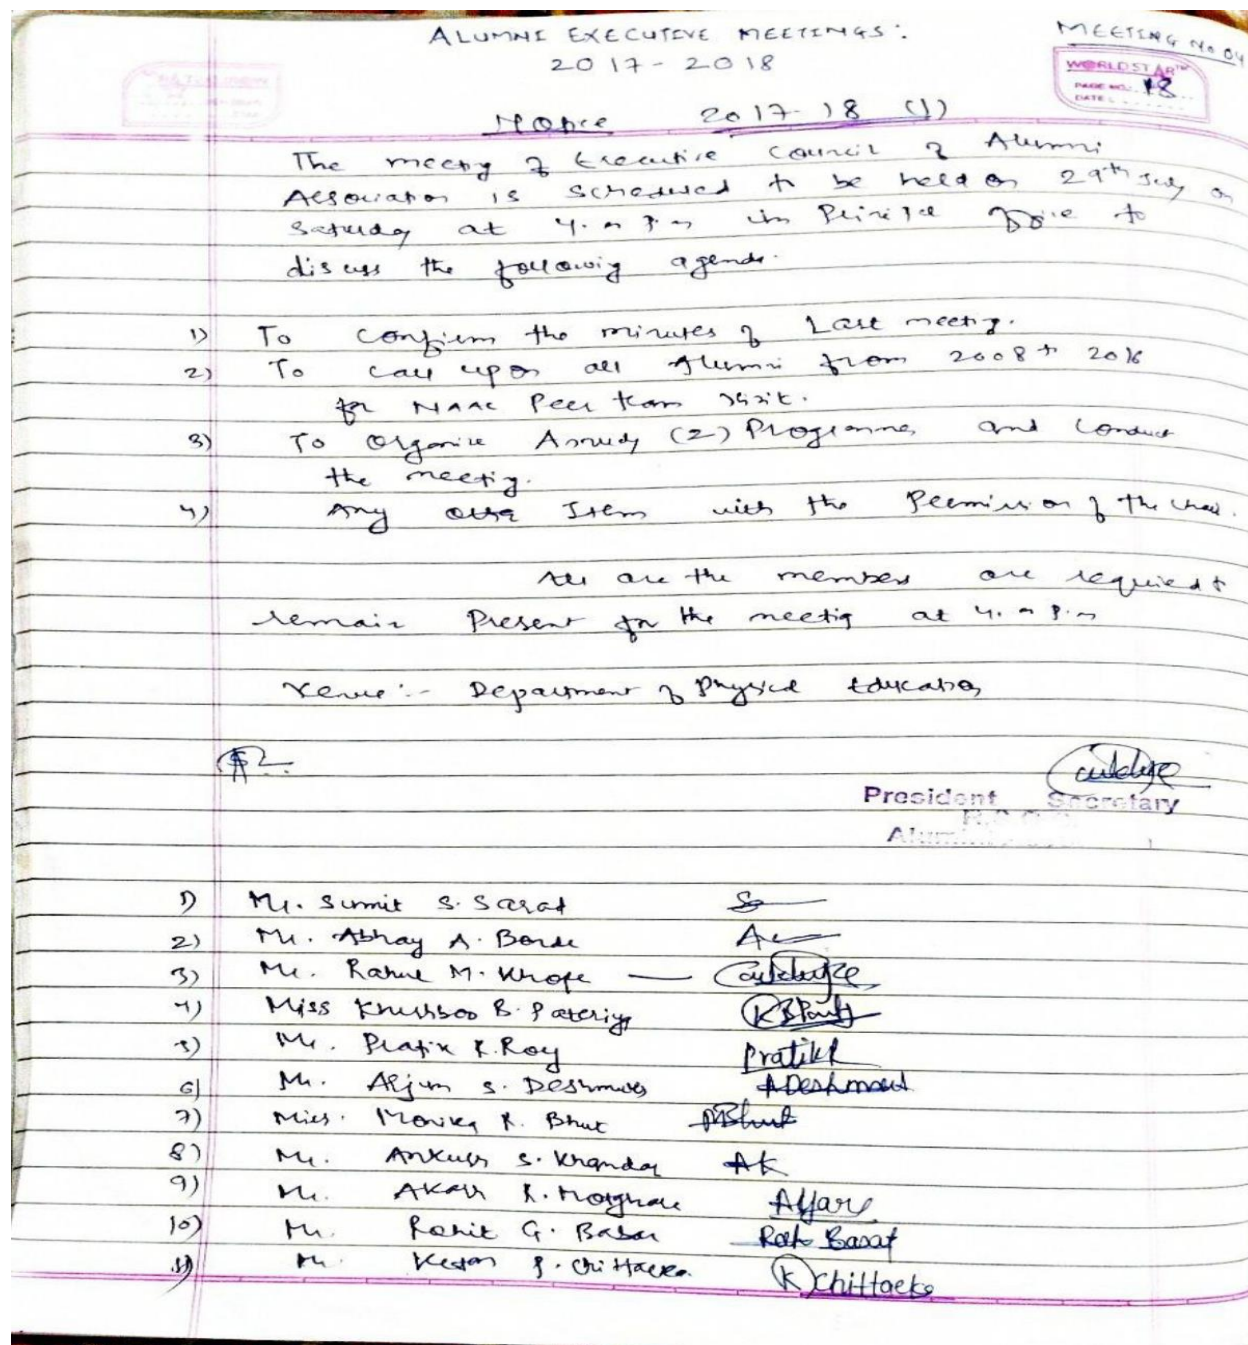 ALUMNI EXECUTIVE MEETINGS:
MEETING No 04
2017-2018
WORLDSTAR™
PAGE NO.: 18
DATE:
Notice 2017-18 (1)
The meeting of Executive Council of Alumni
Association is scheduled to be held on 29th July on
Saturday at 4. in office to
discuss the following agenda.
1) To confirm the minutes of Last meeting.
2) To call upon all Alumni from 2008 to 2016
for NAAC Peer team visit.
3) To Organize (2) Programme and conduct
the meeting.
4) Any other Item with the Permission of the chair.
All are the members are required to
remain Present for the meeting at 4.
Venue:- Department of Physical Education
President Secretary
1) Mr. Sumit S. Sarat
2) Mr. Abhay A. Borde
3) Mr. Rahul M. Khope
4) Miss Khushboo B. KBPant
5) Mr. Pratik K. Roy PratikR
6) Mr. Arjun S. Deshmukh ADeshmukh
7) Miss. Monika R. Bhut Bhut
8) Mr. Ankush S. Khandar AK
9) Mr. Akash K.
10) Mr. Rohit G.
11) Mr. Ketan